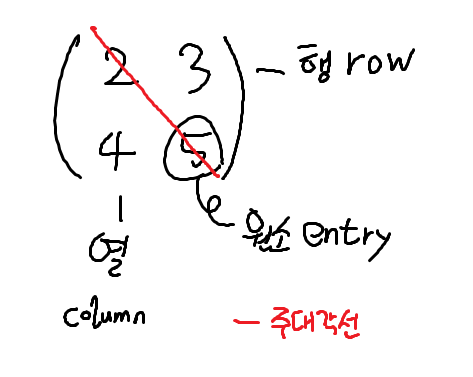 2 3 — 행 row
4 5
원소 entry
열
column
— 주대각선